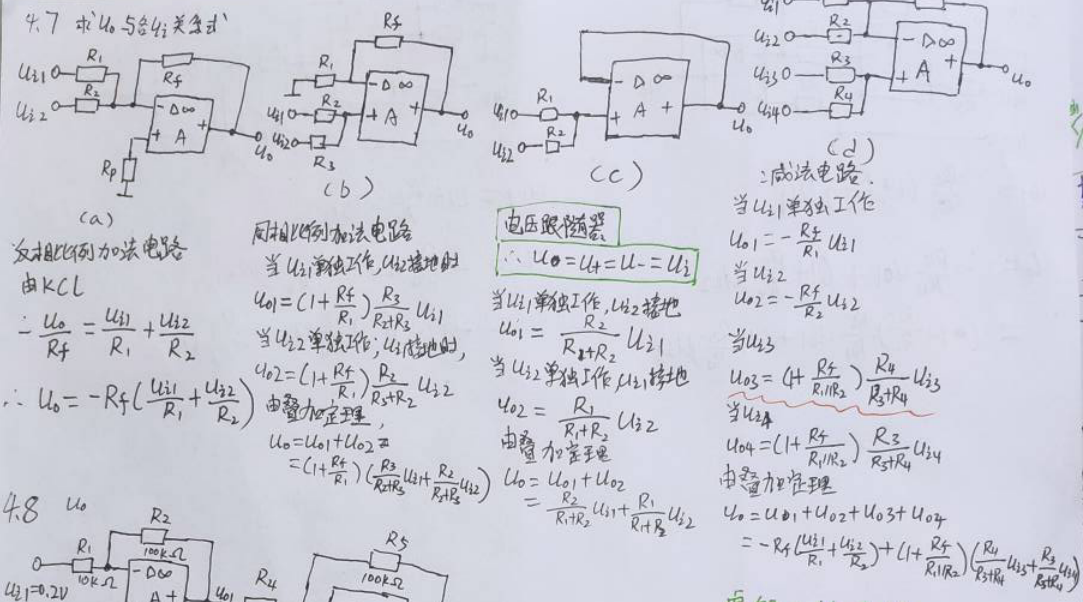 4.7 求 u₀ 与各 uᵢ 关系式
R₁
Rf
uᵢ₁
R₂
uᵢ₂
- ▷∞
+ A +
u₀
Rp
(a)
反相比例加法电路
由KCL
-u₀/Rf = uᵢ₁/R₁ + uᵢ₂/R₂
∴ u₀ = -Rf(uᵢ₁/R₁ + uᵢ₂/R₂)
Rf
R₁
- ▷∞
R₂
uᵢ₁
+ A +
uᵢ₂
R₃
u₀
(b)
同相比例加法电路
当uᵢ₁单独工作,uᵢ₂接地时
u₀₁=(1+Rf/R₁) R₃/(R₂+R₃) uᵢ₁
当uᵢ₂单独工作,uᵢ₁接地时,
u₀₂=(1+Rf/R₁) R₂/(R₃+R₂) uᵢ₂
由叠加定理,
u₀=u₀₁+u₀₂
=(1+Rf/R₁)(R₃/(R₂+R₃) uᵢ₁+R₂/(R₂+R₃) uᵢ₂)
- ▷∞
R₁
uᵢ₁
+ A +
R₂
uᵢ₂
u₀
(c)
电压跟随器
∴ u₀=u₊=u₋=uᵢ
当uᵢ₁单独工作,uᵢ₂接地
u₀₁= R₂/(R₁+R₂) uᵢ₁
当uᵢ₂单独工作,uᵢ₁接地
u₀₂= R₁/(R₁+R₂) uᵢ₂
由叠加定理
u₀=u₀₁+u₀₂
= R₂/(R₁+R₂) uᵢ₁+R₁/(R₁+R₂) uᵢ₂
uᵢ₁
R₂
uᵢ₂
- ▷∞
R₃
uᵢ₃
+ A +
u₀
R₄
uᵢ₄
(d)
:减法电路.
当uᵢ₁单独工作
u₀₁=-Rf/R₁ uᵢ₁
当uᵢ₂
u₀₂=-Rf/R₂ uᵢ₂
当uᵢ₃
u₀₃=(1+Rf/(R₁//R₂)) R₄/(R₃+R₄) uᵢ₃
当uᵢ₄
u₀₄=(1+Rf/(R₁//R₂)) R₃/(R₃+R₄) uᵢ₄
由叠加定理
u₀=u₀₁+u₀₂+u₀₃+u₀₄
=-Rf(uᵢ₁/R₁+uᵢ₂/R₂)+(1+Rf/(R₁//R₂))(R₄/(R₃+R₄) uᵢ₃+R₃/(R₃+R₄) uᵢ₄)
4.8 u₀
R₂
100kΩ
R₁
10kΩ
uᵢ₁=0.2V
- ▷∞
A +
u₀₁
R₄
R₅
100kΩ